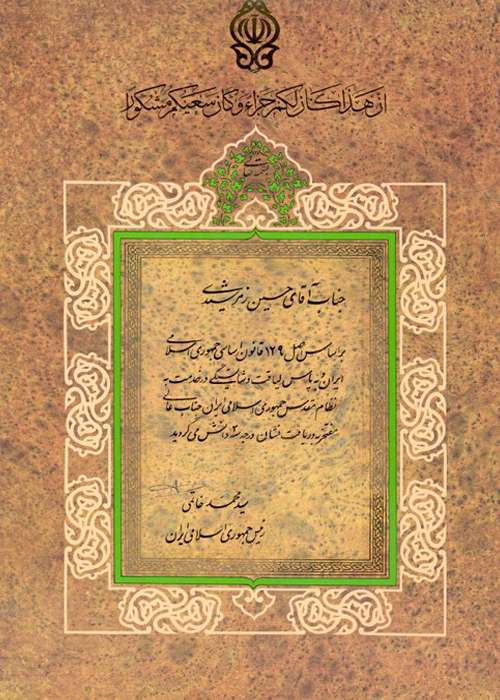 ان هذا كان لكم جزاء و كان سعيكم مشكورا
بسمه تعالی
جناب آقای حسین زمرشیدی
بر اساس اصل ۱۲۹ قانون اساسی جمهوری اسلامی
ایران و به پاس لیاقت و شایستگی در خدمت به
نظام مقدس جمهوری اسلامی ایران جناب عالی
مفتخر به دریافت نشان درجه ۳ دانش می گردید
سید محمد خاتمی
رئیس جمهوری اسلامی ایران